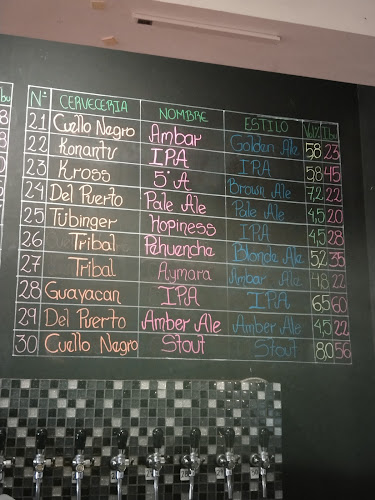 Nº CERVECERIA NOMBRE ESTILO
21 Cuello Negro Ambar Golden Ale 5,8 23
22 Konantü IPA IPA 5,8 45
23 Kross 5º A Brown Ale 7,2 22
24 Del Puerto Pale Ale Pale Ale 4,5 20
25 Tübinger Hopiness IPA 4,5 28
26 Tribal Pehuenche Blonde Ale 5,2 35
27 Tribal Aymara Ambar Ale 4,8 22
28 Guayacan IPA IPA 6,5 60
29 Del Puerto Amber Ale Amber Ale 4,5 22
30 Cuello Negro Stout Stout 8,0 56